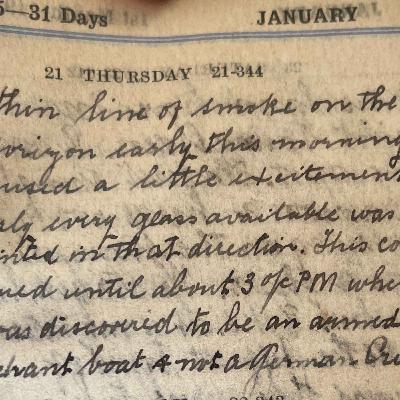 5—31 Days JANUARY
21 THURSDAY 21-344
thin line of smoke on the
orizon early this morning
used a little excitement
ly every glass available was
inted in that direction. This co
ued until about 3 o/c PM whe
was discovered to be an armed
chant boat & not a German Cru